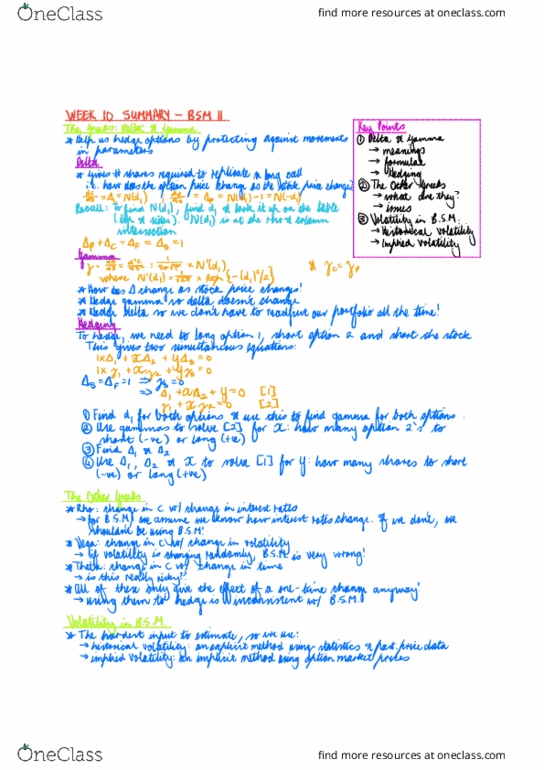 OneClass
find more resources at oneclass.com
WEEK 10 SUMMARY – BSM II
The Greeks: Delta & Gamma
* Help us hedge options by protecting against movements
in parameters
Delta
* Gives # shares required to replicate a long call
i.e. how does the option price change as the stock price change?
= N(d₁) - 1 = N(-d₁)
Recall: To find N(d₁), find d₁ & look it up on the table
(top & sides). N(d₁) is at the row & column
intersection
Δp + Δc = ΔF = Δs = 1
Key Points
① Delta & Gamma
→ meanings
→ formulae
→ Hedging
② The Other Greeks
→ what are they?
→ issues
③ Volatility in B.S.M.
→ Historical volatility
→ Implied volatility
Gamma
* γc = γp
where N'(d₁) =
* How does Δ change as stock price changes?
* Hedge gamma so delta doesn't change
* Hedge delta so we don't have to readjust our portfolio all the time!
Hedging
To hedge, we need to long option 1, short option 2 and short the stock
This gives two simultaneous equations:
1xΔ₁ + xΔ₂ + yΔs = 0
1xγ₁ + xγ₂ + yγs = 0
Δs = ΔF = 1 ⇒ γs = 0
⇒ Δ₁ + xΔ₂ + y = 0 [1]
γ₁ + xγ₂ = 0 [2]
① Find d₁ for both options & use this to find gamma for both options.
② Use gammas to solve [2] for x: how many option 2's to
short (-ve) or long (+ve)
③ Find Δ₁ & Δ₂
④ Use Δ₁, Δ₂ & x to solve [1] for y: how many shares to short
(-ve) or long (+ve)
The Other Greeks
* Rho: change in C w/ change in interest rates
→ for B.S.M, we assume we know how interest rates change. If we don't, we
shouldn't be using B.S.M!
* Vega: change in C w/ change in volatility
→ if volatility is changing randomly, B.S.M. is very wrong!
* Theta: change in C w/ change in time
→ is this really risky??
* All of these only give the effect of a one-time change anyway!
→ using them to hedge is inconsistent w/ B.S.M.
Volatility in B.S.M.
* The hardest input to estimate, so we use:
→ historical volatility: an explicit method using statistics & past price data
→ implied volatility: an implicit method using option market prices
OneClass
find more resources at oneclass.com